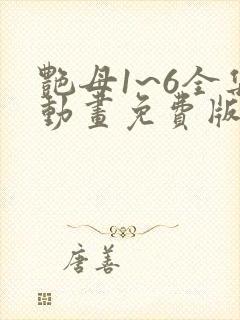 艷母1~6全集
動畫免費版
唐善